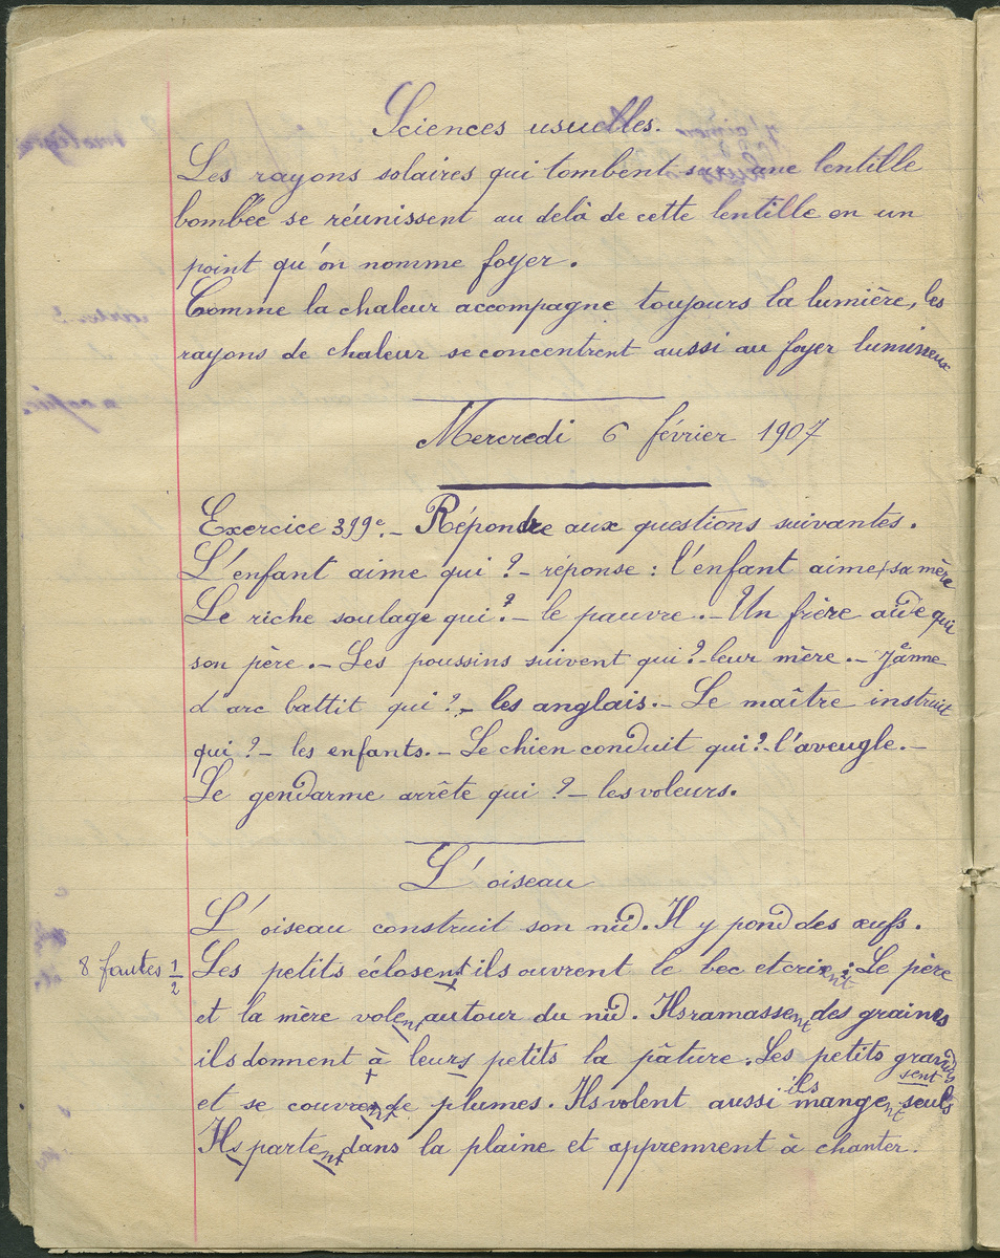 Sciences usuelles.
Les rayons solaires qui tombent sur une lentille
bombée se réunissent au delà de cette lentille en un
point qu'on nomme foyer.
Comme la chaleur accompagne toujours la lumière, les
rayons de chaleur se concentrent aussi au foyer lumineux
Mercredi 6 février 1907
Exercice 399e. - Répondre aux questions suivantes.
L'enfant aime qui ? - réponse : l'enfant aime sa mère
Le riche soulage qui ? - le pauvre. - Un frère aide qui
son père. - Les poussins suivent qui ? - leur mère. - Jeanne
d'arc battit qui ? - les anglais. - Le maître instruit
qui ? - les enfants. - Le chien conduit qui ? - l'aveugle. -
Le gendarme arrête qui ? - les voleurs.
L'oiseau
L'oiseau construit son nid. Il y pond des œufs.
8 fautes 1/2
Les petits éclosent ils ouvrent le bec et crient : Le père
et la mère volent autour du nid. Ils ramassent des graines
ils donnent à leurs petits la pâture. Les petits grandissent
et se couvrent de plumes. Ils volent aussi ils mangent seuls
Ils partent dans la plaine et apprennent à chanter.